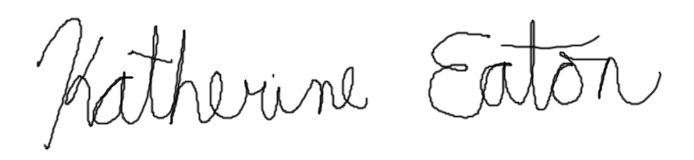 Katherine Eaton